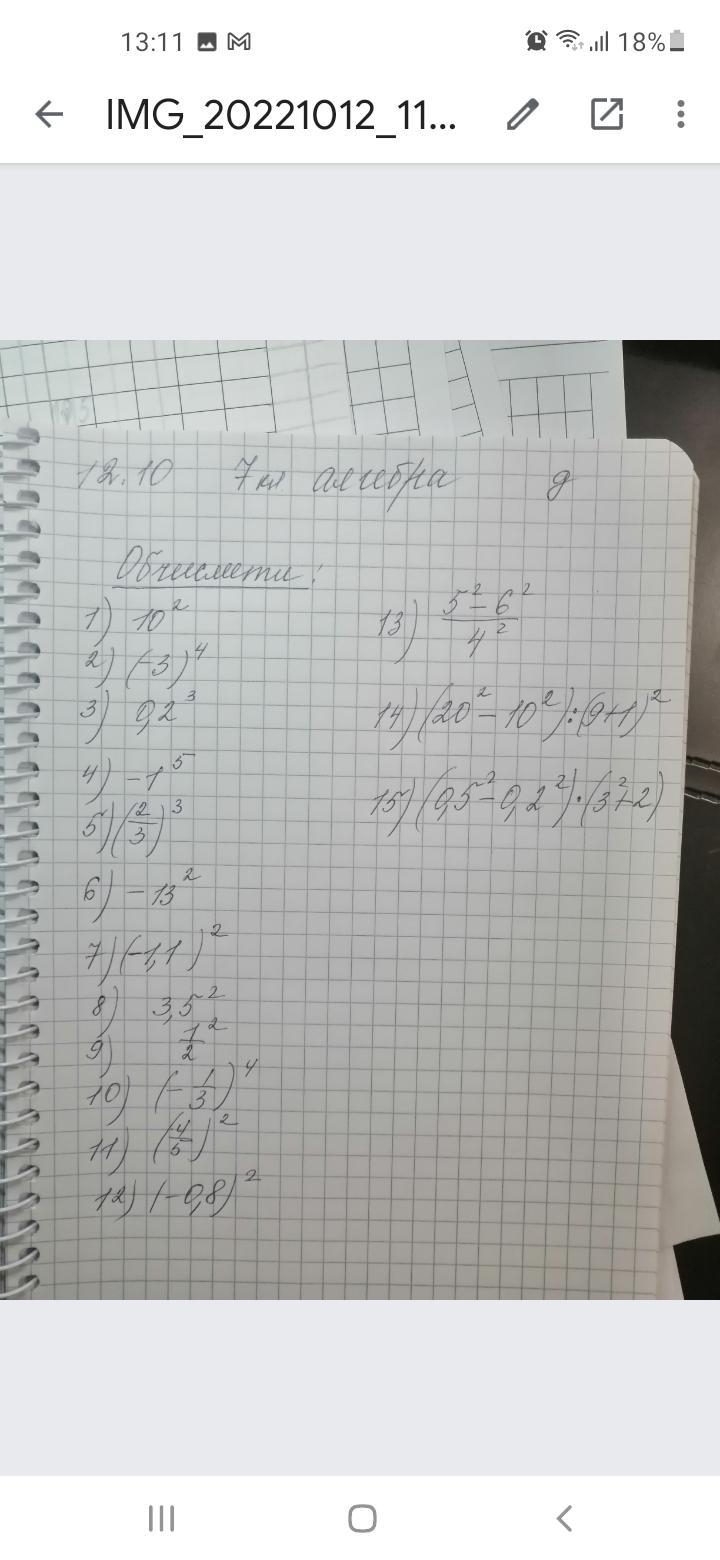 13:11 18%
IMG_20221012_11...
12.10 7 кл алгебра g
Обчислити!
1) 10²
2) (-3)⁴
3) 0,2³
4) -1⁵
5) (2/3)³
6) -13²
7) (-1,1)²
8) 3,5²
9) 1²/2
10) (-1/3)⁴
11) (4/5)²
12) (-0,8)²
13) (5²-6²)/4²
14) (20²-10²):(9+1)²
15) (0,5²-0,2²)·(3²+2)